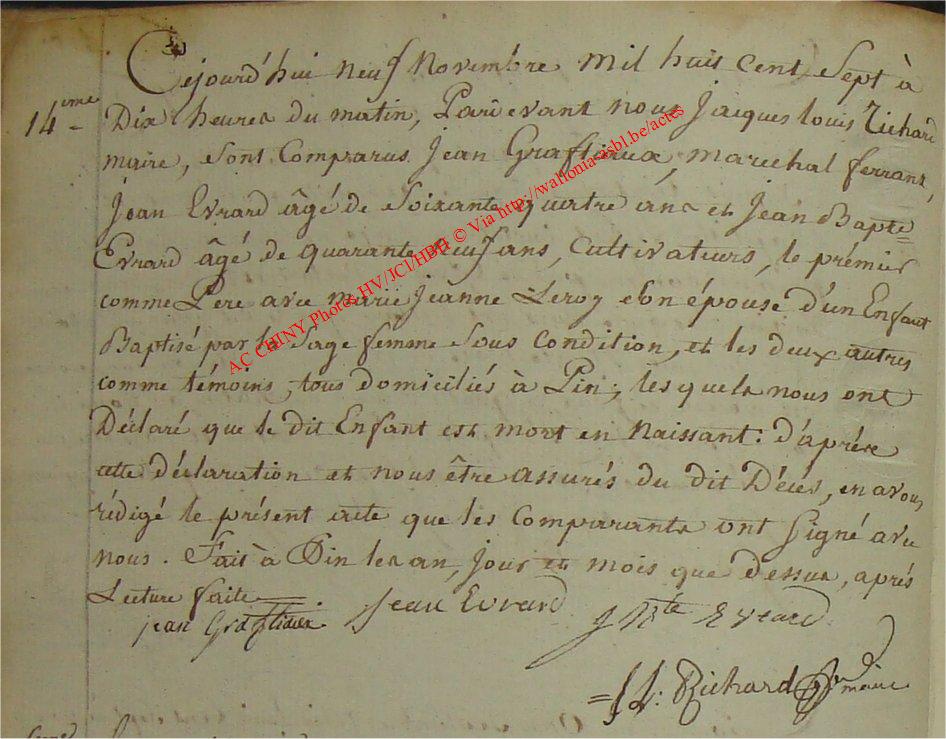 Cejourd'hui neuf Novembre mil huit cent Sept à
14eme
Dix heures du matin, Pardevant nous Jacques louis Richard
maire, Sont Comprarus Jean Graftiaux, marechal ferrant,
Jean Evrard âgé de Soixante quatre ans et Jean Bapte=
Evrard âgé de quarante neuf ans, Cultivateurs, le premier
comme Pere avec marie Jeanne Leroy Son épouse d'un Enfant
Baptisé par la Sage femme Sous Condition, et les deux autres
comme témoins, tous domiciliés à Pin; les quels nous ont
Déclaré que le dit Enfant est mort en Naissant: d'aprése
cette déclaration et nous être assurés du dit Décés, en avons
rédigé le présent acte que les Comparants ont Signé avec
nous. Fait à Pin les an, Jour et mois que dessus, aprés
Lecture faite
jean Graftiaux Jean Evrard J Bte Evrard
=JL. Richard maire
AC CHINY Photos HV/JCI/HBH © Via http://wallonia-asbl.be/actes